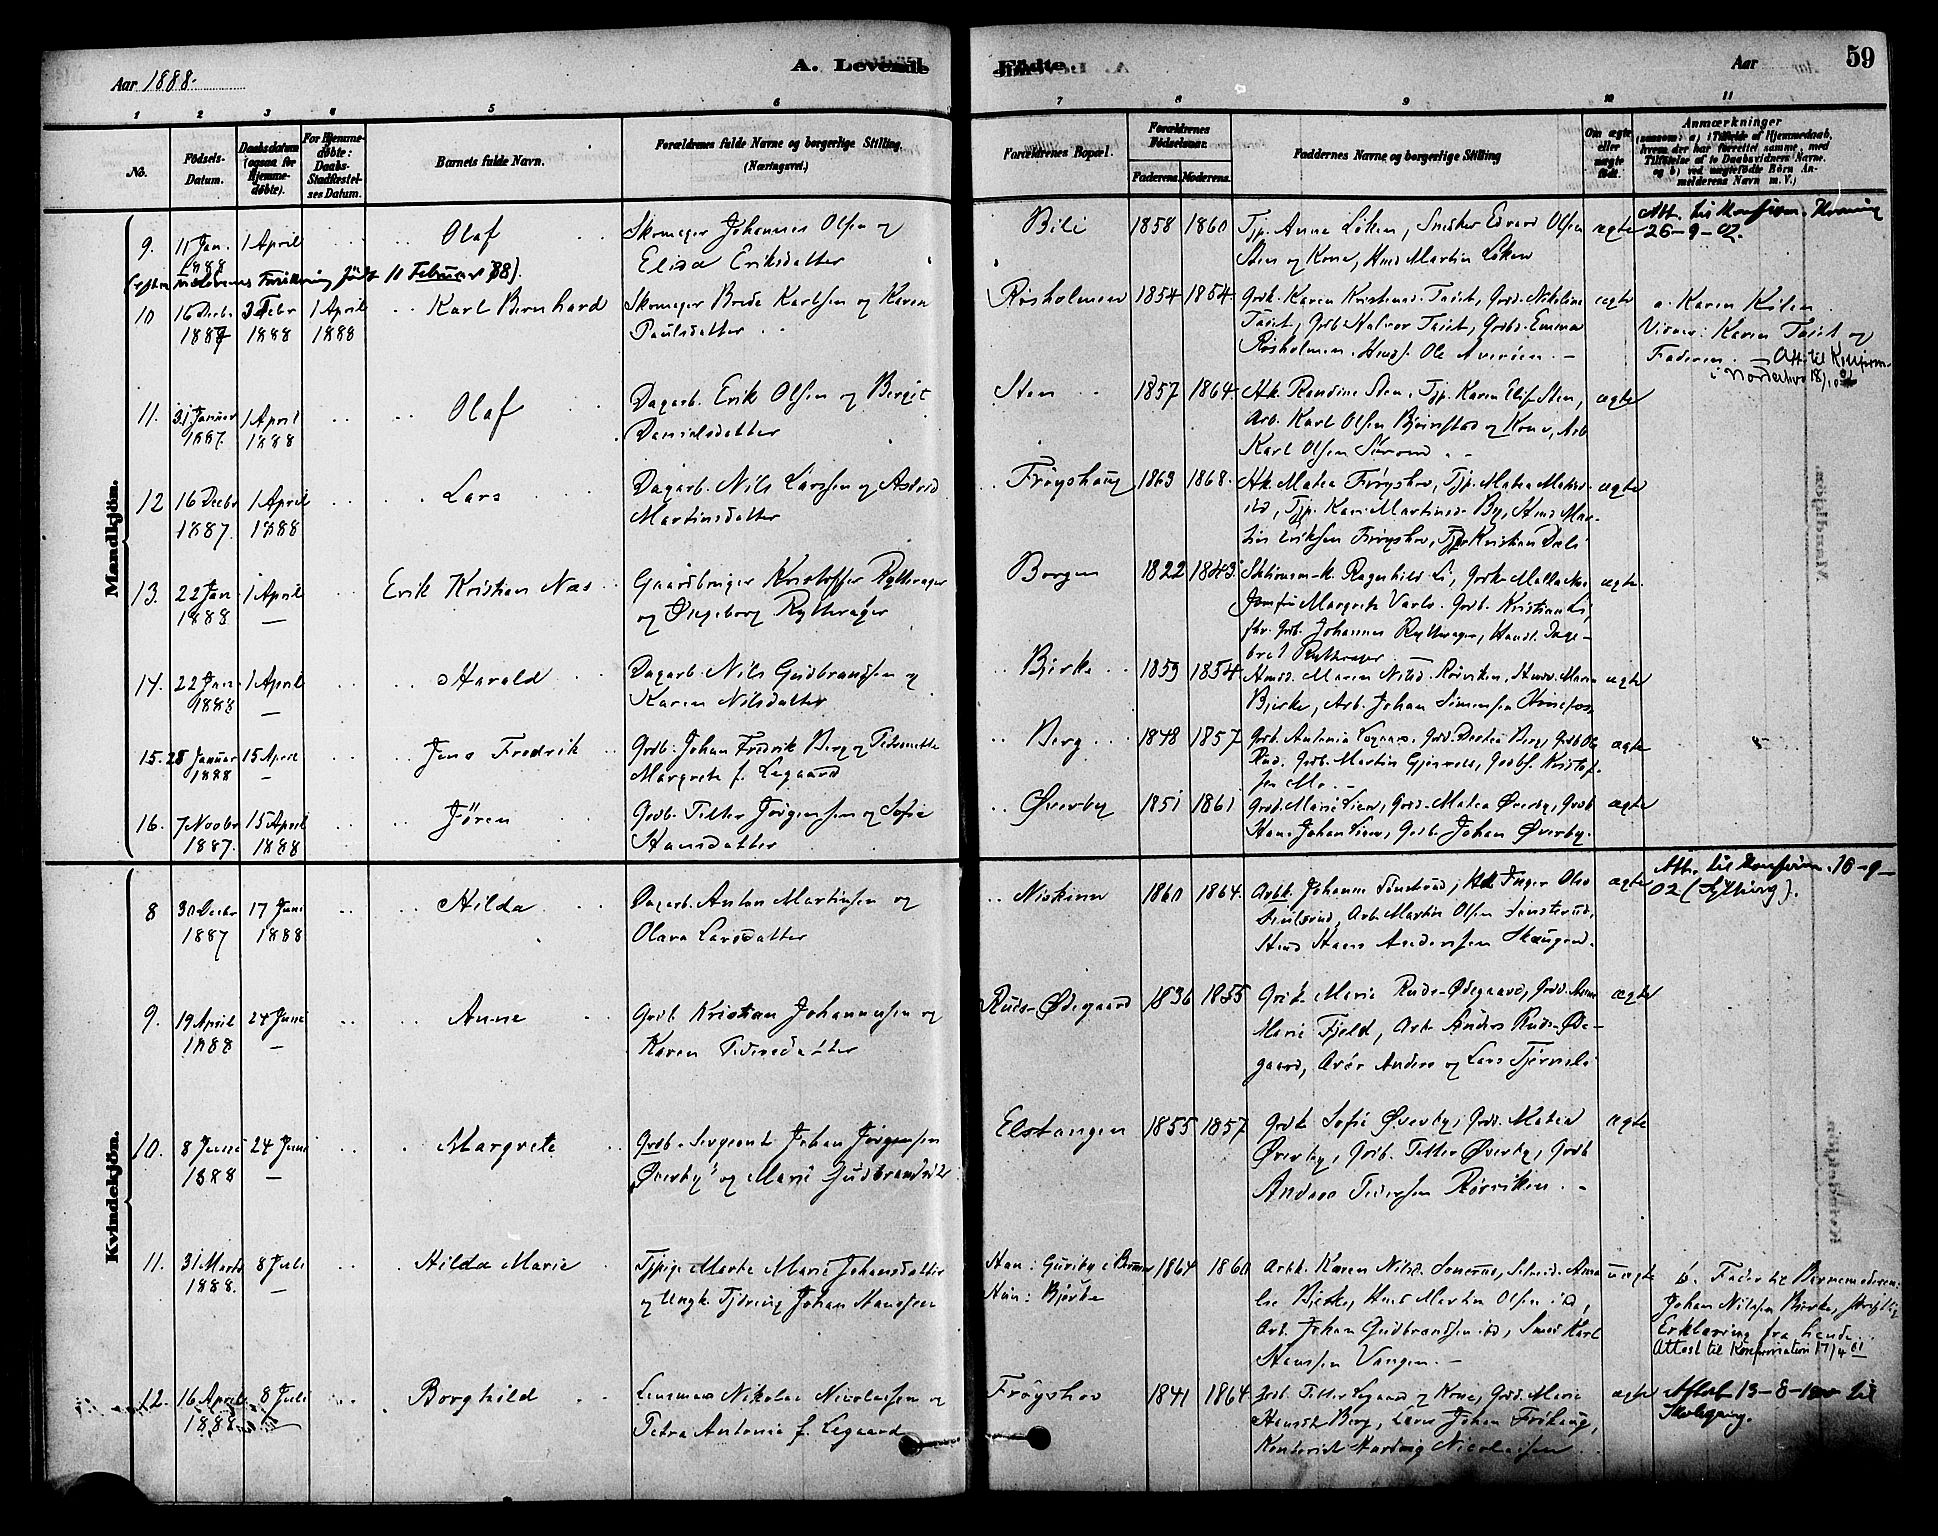 Aar 1888.
A. Levende
Fødte.
Aar
59
1 2 3 4 5 6 7 8 9 10 11
No.
Fødsels-Datum.
Daabsdatum (ogsaa for Hjemme-døbte).
For Hjemme-døbte: Daabs-Stadfæstel-ses Datum.
Barnets fulde Navn.
Forældrenes fulde Navne og borgerlige Stilling.
(Næringsvei.)
Forældrenes Bopæl.
Forældrenes Fødselsaar.
Faderens. Moderens.
Faddernes Navne og borgerlige Stilling
Om ægte eller uægte født.
Anmærkninger
(saasom: a) i Tilfælde af Hjemmedaab, hvem der har forrettet samme, med Tilføielse af to Daabsvidners Navne. og b) ved uægtefødte Børn An-melderens Navn m. V.)
Mandkjön.
9. 11 Jan. 1888 1 April Olaf Skomager Johannes Olsen og
Elisa Eriksdatter
Bili 1858 1860 Tjp. Anne Løken, Snedker Edvard Olsen
Sten og Kone, Huusmd Martin Løken
ægte
Att. til Konfirm.
26-9-02.
(efter Moderens Forklaring født 11 Februar 88).
10 16 Decbr 1887 3 Febr 1888 1 April 1888 Karl Bernhard Skomager Brede Karlsen og Karen
Paulsdatter
Røsholmen 1854 1854 Gdbk. Karen Kristensd. Tait, Gdbd. Nikoline
Tait, Gdb Halvor Tait, Gdbd. Emma
Røsholmen, Huusf. Ole Averøen. —
ægte
a. Karen Kolen
Vidner: Karen Tait og
Faderen. — Att. til Konfirm.
i Norderhov 18/10 01
11. 31 Januar 1887. 1 April 1888 Olaf Dagarb. Erik Olsen og Bergit
Danielsdatter
Sten 1857 1864 Hk. Randine Sten, Tjp. Karen Elise Sten,
Arb. Karl Olsen Bjørnstad og Kone, Arb
Karl Olsen
ægte
12 16 Decbr 1887. 1 April 1888 Lars Dagarb. Nils Larssen og Astrid
Martinsdatter
Frøyshaug 1863 1868. Hk. Matea Frøyshov, Tjp. Matea
ibd, Tjp. Kari Martinsd. By, Huusmd Mar-
tin Eriksen Frøyshov, Tjp Kristian Dæli
ægte
13. 22 Jan 1888 1 April — Erik Kristian Næs Gaardbruger Kristoffer Rytterager
og Ingeborg Rytterager
Borgen 1822 1843 Ragnhild Li,
Jomfru Margrete Varlo. Gdb. Kristian Li,
fhv. Gdb. Johannes Rytterager, Handl. Inge-
bret Rytterager
ægte.
14. 22 Jan 1888 1 April — Harald Dagarb. Nils Gudbrandsen og
Karen Nilsdatter
Bjerke 1859 1854 Huusd. Maren Nilsd. Rørviken, Huusd. Maren
Bjerke, Arb. Johan Simensen Hønefoss.
ægte
15. 28 Januar 1888 15 April — Jens Fredrik Gdb. Johan Fredrik Berg og Petronette
Margrete f. Legaard
Berg 1848 1857 Gdb. Antonia Legaard, Gdbd. Dortea Berg, Gdb Ole
Rud, Gdb. Martin Gjermell, Gdbf. Kristof-
fer Mo. —
ægte
16. 7 Novbr 1887. 15 April 1888 Jören Gdb. Petter Jørgensen og Sofie
Hansdatter
Øverby 1851 1861 Gdbd. Marie Lien, Gdbd. Matea Øverby, Gdb
Hans Johan Lien, Gdb. Johan Øverby.
ægte
Kvindekjön.
8 30 Decbr 1887 17 Juni 1888 Hilda Dagarb. Anton Martinsen og
Olava Larsdatter
Niskinn 1860 1864. Arbk. Johanne Finsrud, Hk Inger Olsd
Finsrud, Arb. Martin Olsen Finsterud,
Huusmd Hans Andersen Skaugend.
ægte
Att. til Konfirm. 16-9-
02 (Sylling).
9. 19 April 1888 24 Juni — Anne Gdb Kristian Johannesen og
Karen Pedersdatter
Ruds-Ødegaard 1836 1855 Gdbk. Marie Ruds-Ødegaard, Gdbd. Anne
Marie Fjeld, Arb. Anders Ruds-Øde-
gaard, Arbr Anders og Lars Tjernsli
ægte
10. 8 Juni 1888 24 Juni — Margrete Gdb. Sergeant Johan Jørgensen
Øverby og Marie Gudbrandsdtr.
Elstangen 1855 1857 Gdbk Sofie Øverby, Gdbd. Matea
Øverby, Gdb. Petter Øverby, Gdb
Anders Pedersen Rørviken. —
ægte
11. 31 Marts 1888. 8 Juli — Hilda Marie Tjpig. Marte Marie Johansdatter
og Ungk. Tjdreng Johan Hanssen
Han: Gurиby i Bærum
Hun: Bjerke
1864 1860 Arbk. Karen Nilsd. Ama-
lie Bjerke, Huusmd Martin Olsen ibd,
Arb. Johan Gudbrandsen ibd, Smed Karl
Hanssen Vangen. —
uægte
b. Fader til Barnemoderen:
Johan Nilssen Bjerke, skriftlig
Erklæring fra hende.
Attest til Konfirmation 17/4 01
12. 16 April 1888. 8 Juli — Borghild Lensmand Nikolai Nicolaisen og
Petra Antonie f. Legaard
Frøyshov 1841 1864 Gdb. Petter Legaard og Kone, Gdbd. Marie
Hansdt Berg, Lærer Johan Frøhaug,
Kontorist Hartvig Nicolaisen.
ægte
Attest 13-8-1900 til